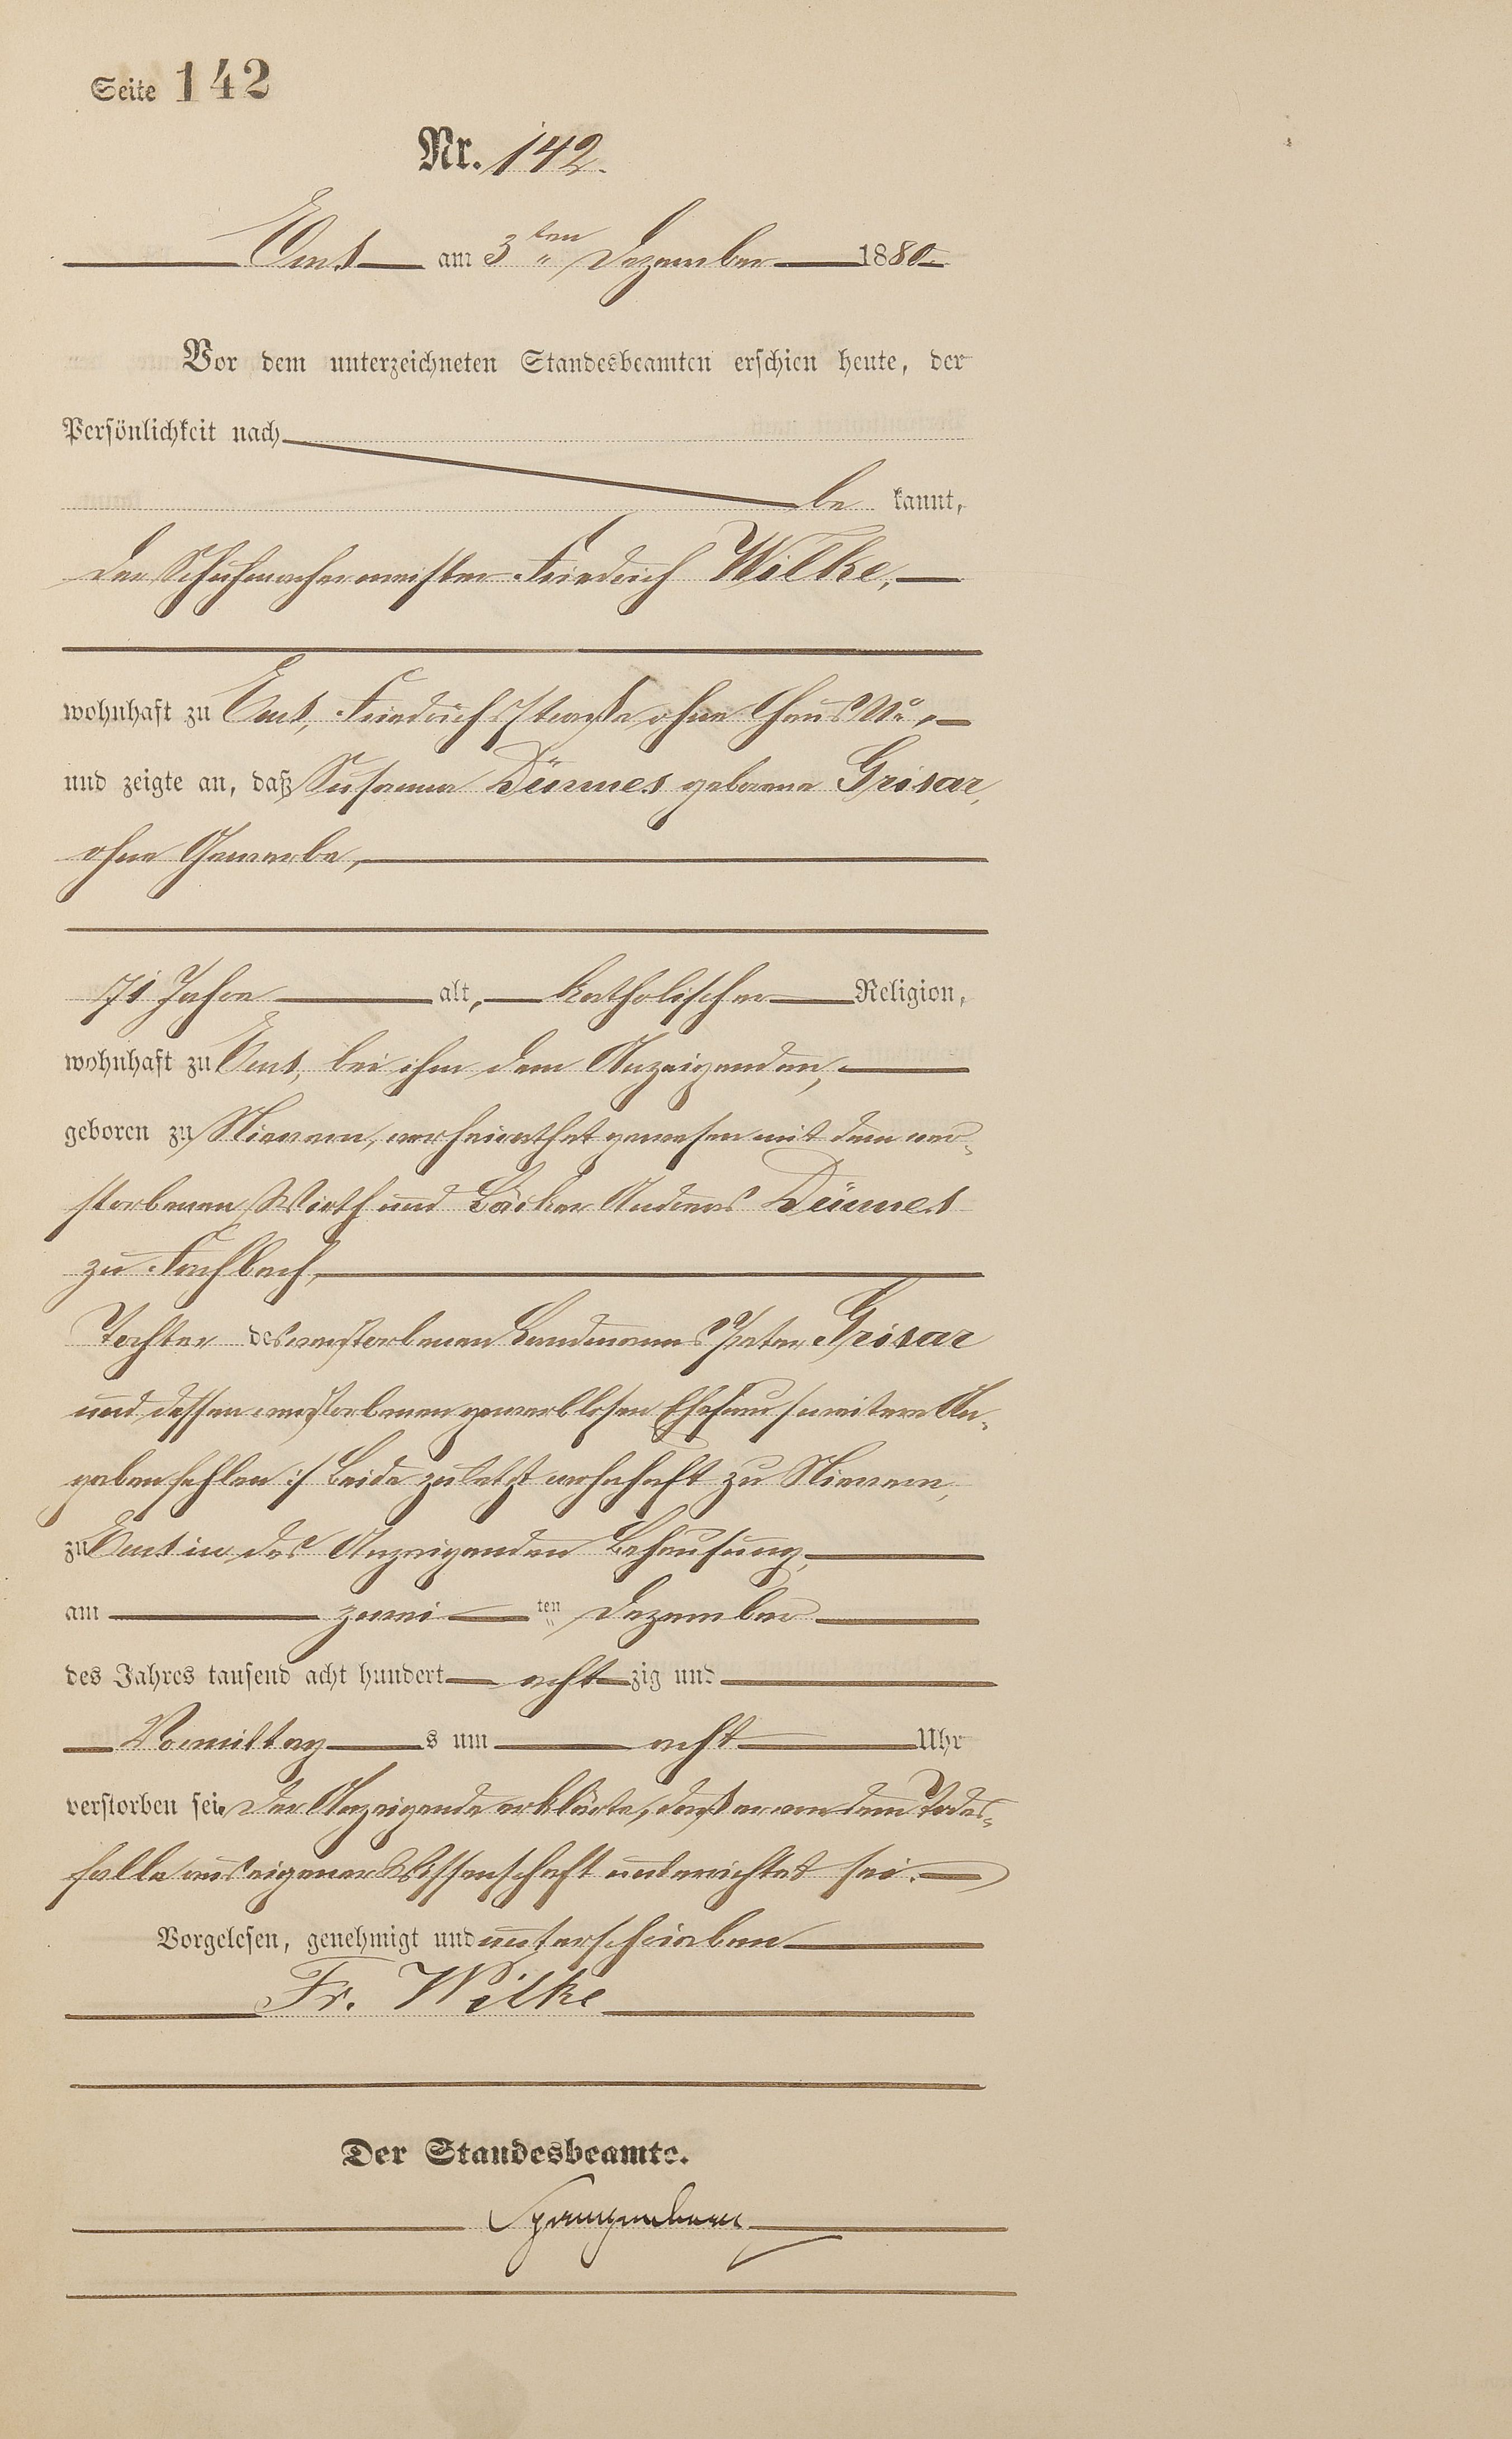 Seite 142
Nr. 142.
Ems am 3ten Dezember 1880.
Vor dem unterzeichneten Standesbeamten erschien heute, der
Persönlichkeit nach
be kannt,
der Schuhmachermeister Friedrich Wilke,
wohnhaft zu Ems, Friedrichsstraße ohne Haus No,
und zeigte an, daß Susanna Dünnes geborene Grisar,
ohne Gewerbe,
71 Jahre alt, katholischer Religion,
wohnhaft zu Ems, bei ihm dem Anzeigenden,
geboren zu Nievern, verheirathet gewesen mit dem ver-
storbenen Wirth und Bäcker Andreas Dünnes
zu Fachbach,
Tochter des verstorbenen Landmanns Peter Grisar
und dessen verstorbenen gewerblosen Ehefrau /: weitere An-
gaben fehlen :/ beide zuletzt wohnhaft zu Nievern,
zu Ems in des Anzeigenden Behausung,
am zwei ten Dezember
des Jahres tausend acht hundert acht zig und
Vormittag s um acht Uhr
verstorben sei. Der Anzeigende erklärte, daß er von dem Todes-
falle aus eigener Wissenschaft unterrichtet sei.
Vorgelesen, genehmigt und unterschrieben
Fr. Wilke
Der Standesbeamte.